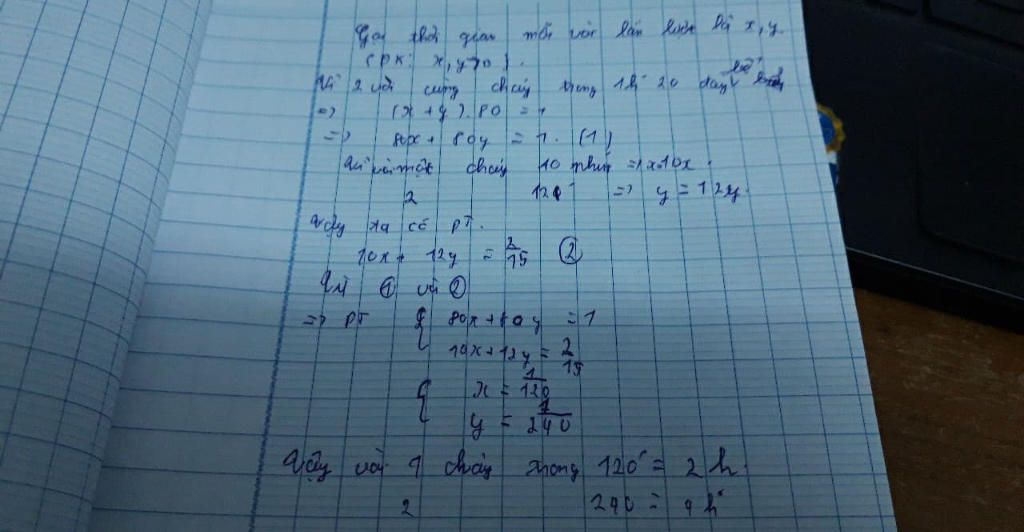 Gọi thời gian mỗi vòi lần lượt là x, y.
(ĐK: x, y>0).
Vì 2 vòi cùng chảy trong 1h 20 đầy bể
=> (x + y). 80 = 1
=> 80x + 80y = 1. (1)
Vì vòi một chảy 10 phút => x=10x.
2 12' => y = 12y.
Vậy ta có PT.
10x + 12y = 2/15 (2)
Từ (1) và (2)
=> PT { 80x + 80y = 1
10x + 12y = 2/15
{ x = 1/120
y = 1/240
Vậy vòi 1 chảy trong 120' = 2h.
2 240 = 4h